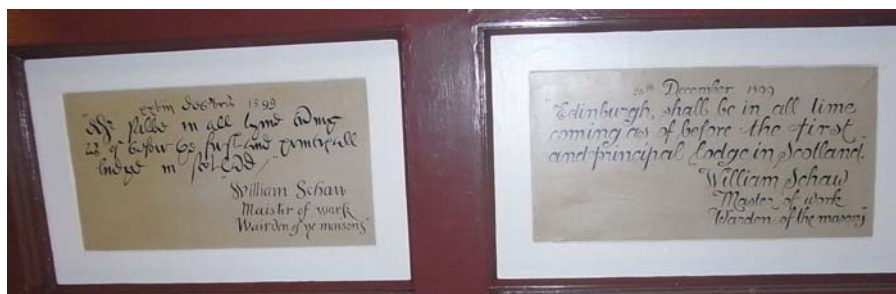 Decbris 1599
in all tyme
first and principall
ludge in Scotland
"William Schaw
Maistir of work
Wairden of ye maisons"
28th December 1599
"Edinburgh, shall be in all time
coming as of before the first
and principal lodge in Scotland."
William Schaw
Master of work
Warden of the masons"